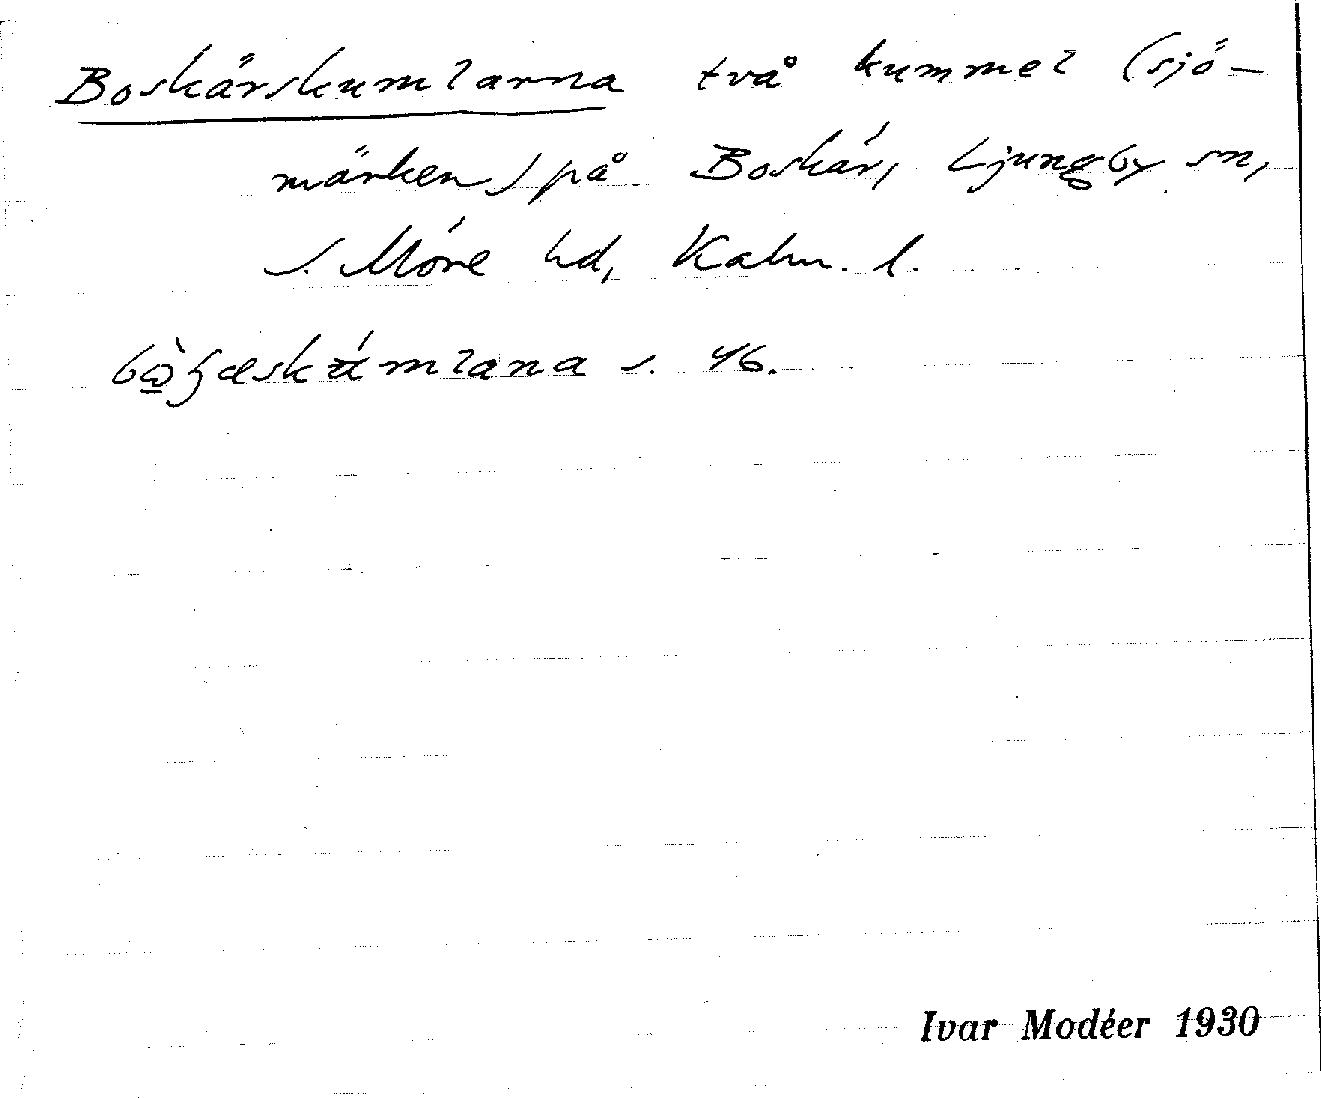 Boskärskumlarna två kummel (sjö-
märken) på Boskär, Ljungby sn,
S. Möre hd, Kalm. l.
s. 46.
Ivar Modéer 1930